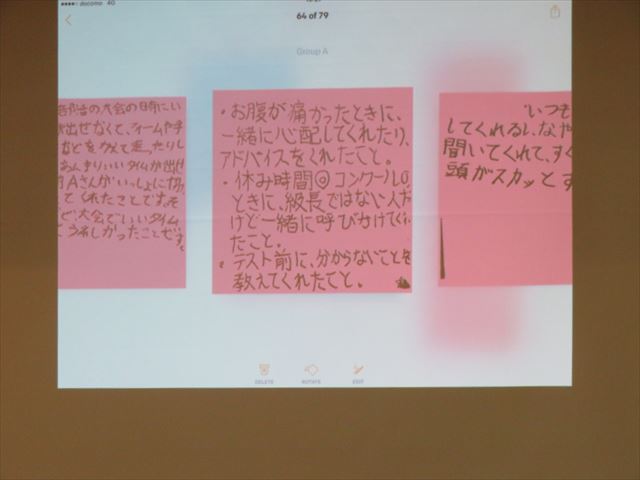 docomo 4G
64 of 79
Group A
の大会の日前にい
出せなくて、フォームや手
あんまりいいタイムが出せ
Aさんがいっしょに
てくれたことです。そ
ど、大会でいいタイム
うれしかったことです。
・お腹が痛かったときに、
一緒に心配してくれたり、
アドバイスをくれたこと。
・休み時間◎コンクールの
ときに、級長ではない人だ
けど一緒に呼びかけてくれ
たこと。
・テスト前に、分からないことを
教えてくれたこと。
いつも
してくれるし、なや
聞いてくれて、すぐ
頭がスカッとす
DELETE
ROTATE
EDIT